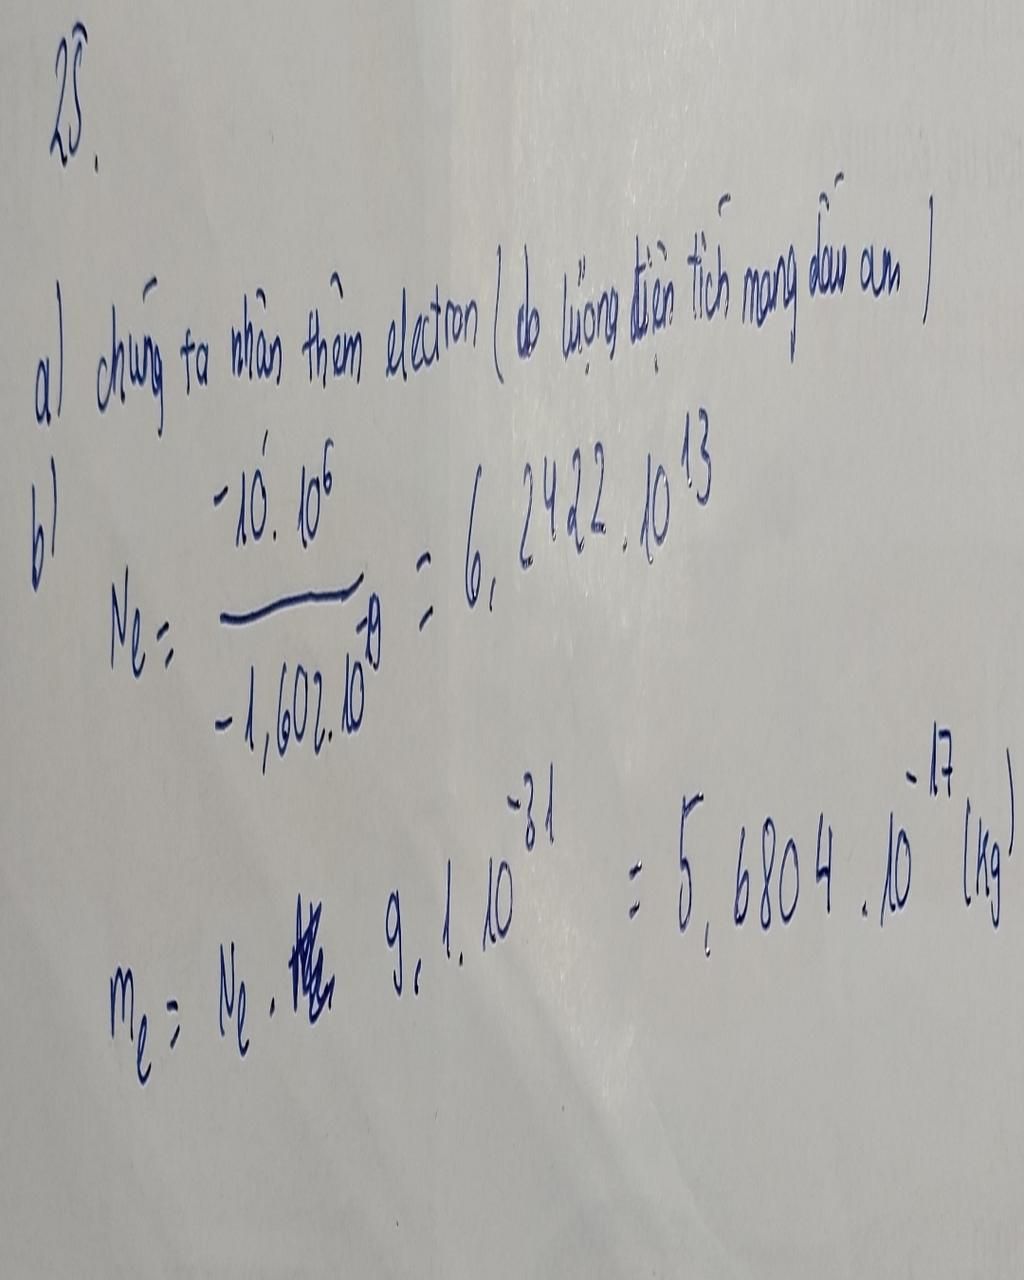 25.
a) chúng ta nhận thêm electron (do lượng điện tích mang dấu âm)
b) Ne = -10. 10^6 / -1,602.10^-19 = 6,2422.10^13
me = Ne . 9,1.10^-31 = 5,6804.10^-17 (kg)